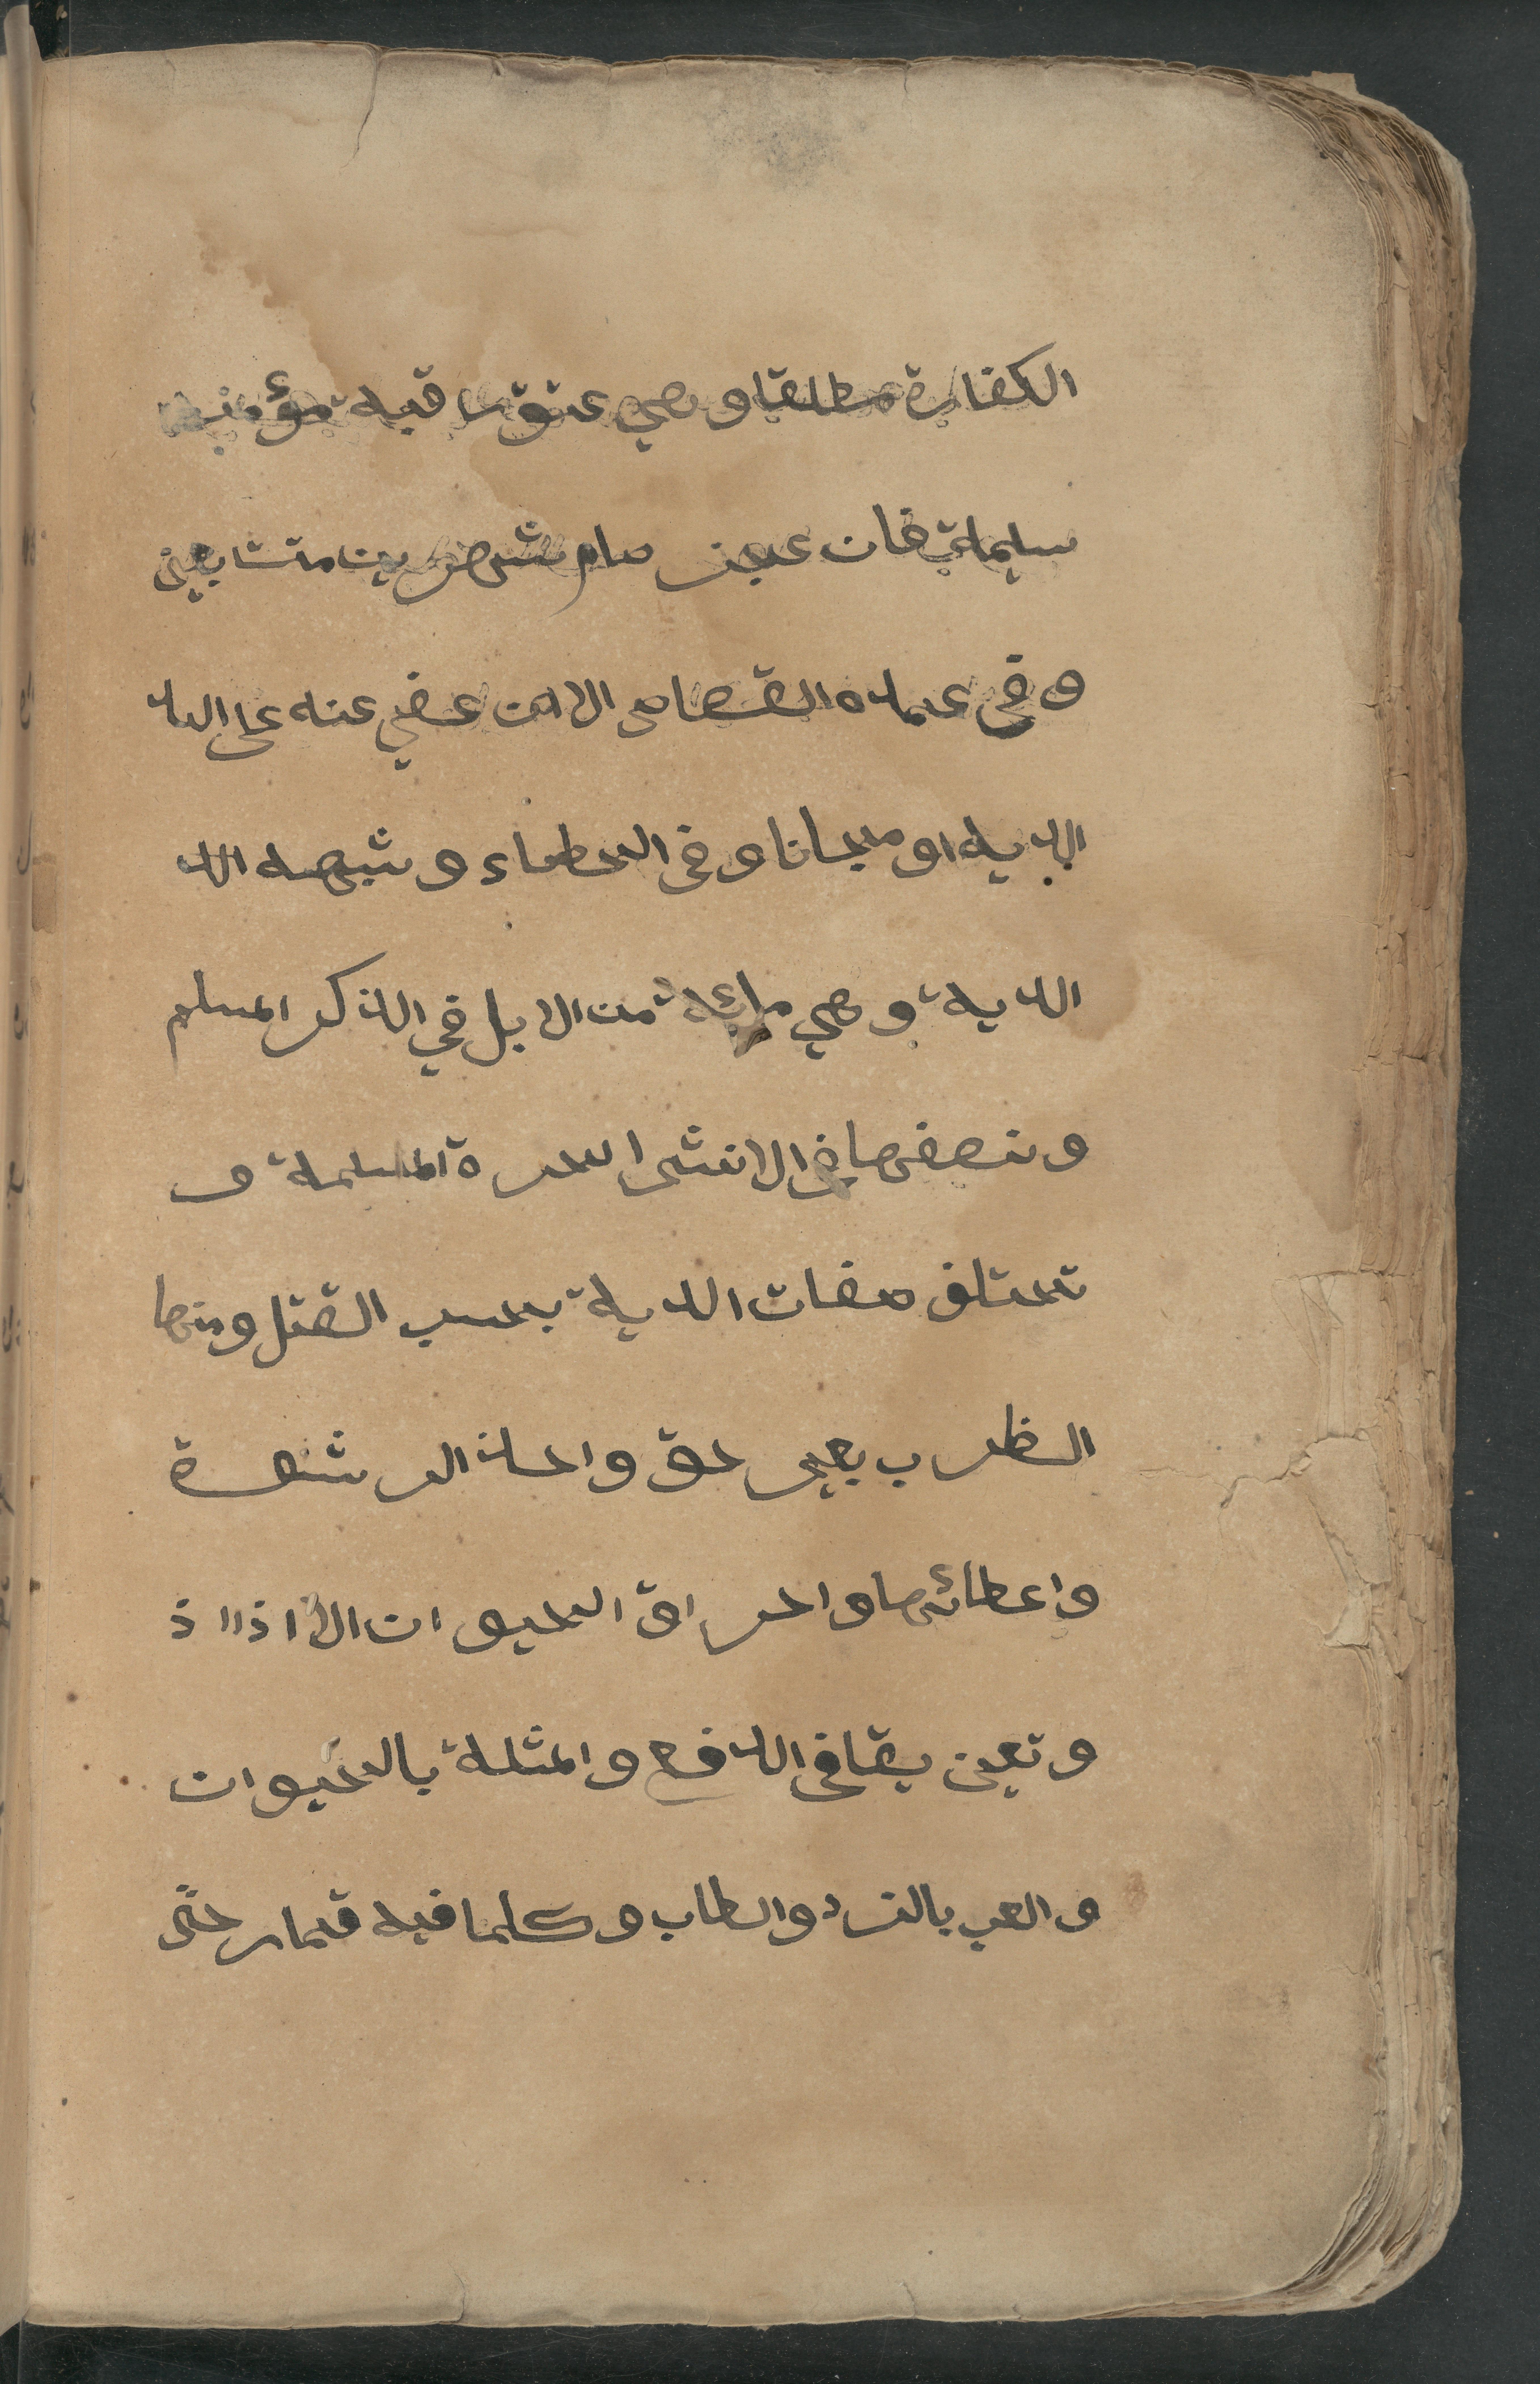 الكفارة مطلقا وهي عتق رقبة مؤمنة
سليمة فان عجز صام شهرين متتابعين
و في عمده القصاص الا ان عفي عنه على الد
الدية او مجانا و في الخطاء و شبهه الد
الدية و هي مائة من الابل في الذكر المسلم
و نصفها في الانثى الحرة المسلمة و
تختلف صفات الدية بحسب القتل ومنها
الظرب بغير حق واخذ الرشوة
واعطائها واحراق الحيوان الا اذا اذ
و تعين يقا في الدفع والمثلة بالحيوان
و العب بالنرد والطاب و كلما فيه قمار حتى